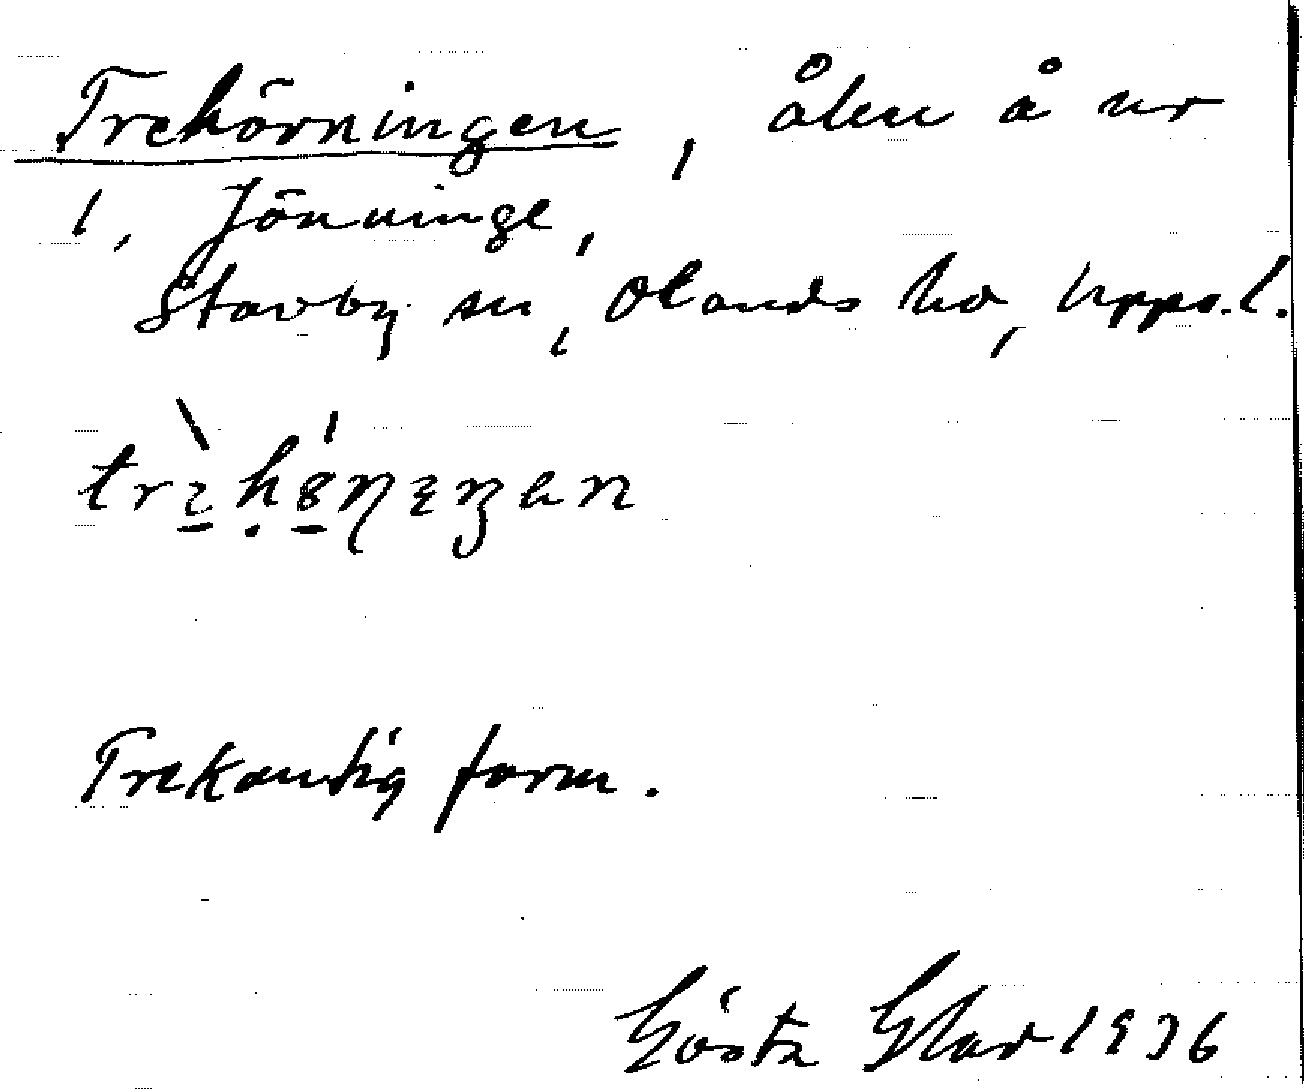 Trehörningen, åken å nr
1, Jönninge,
Stavby sn, Olands hd, Upps. l.
Trekantig form.
Gösta Glad 1936